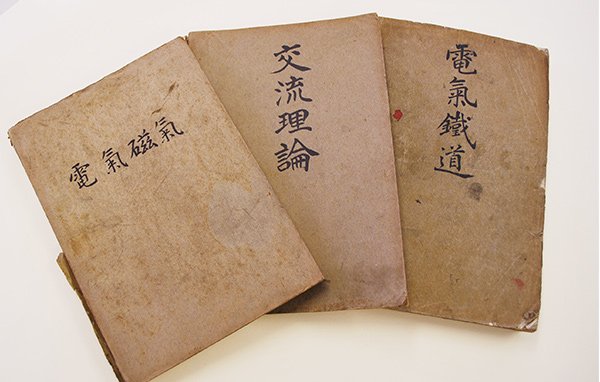 電氣磁氣
交流理論
電氣鐵道